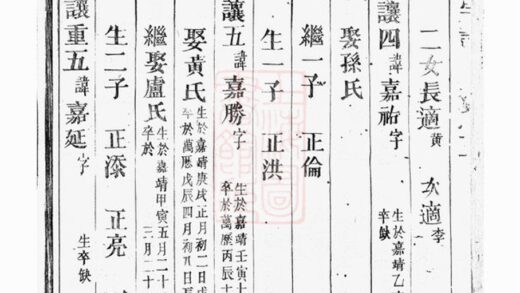 二女長適黃 次適李
讓四諱嘉祐字 生於嘉靖乙 卒缺
娶孫氏
繼一子 正倫
生一子 正洪
讓五諱嘉勝字 生於嘉靖壬寅十 卒於萬歷丙辰十
娶黃氏 生於嘉靖庚戌正月初二日戌 卒於萬歷戊辰四月初九日辰
繼娶盧氏 生於嘉靖甲寅五月二十 卒於 三月二十
生二子 正添 正亮
讓重五諱嘉延字 生卒缺